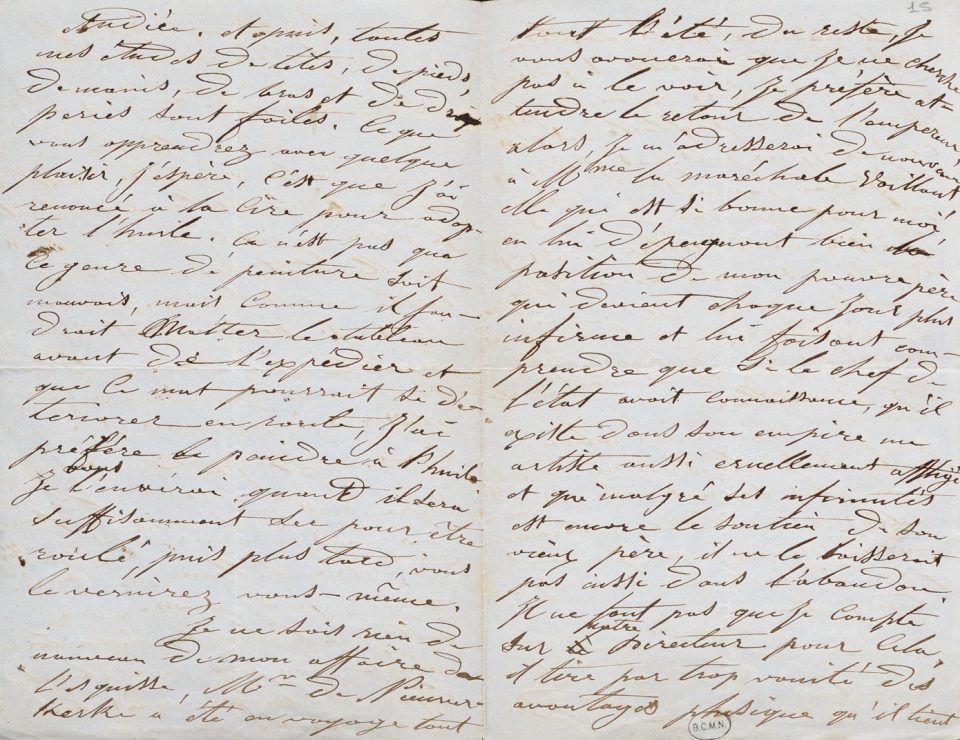 étudiée. et puis, toutes
mes études de têtes, de pieds
de mains, de bras et de dra
peries sont faites. Ce que
vous apprendrez avec quelque
plaisir, j'espère, c'est que j'ai
renoncé à la cire pour adop-
ter l'huile. Ca n'est pas que
ce genre de peinture soit
mauvais, mais comme il fau-
drait Matter le tableau
avant de l'expédier et
que ce mat pourrait se dé-
teriorer en route, j'ai
préféré le peindre à l'huile
Je vous l'enverai quand il sera
suffisamment sec pour être
roulé, puis plus tard, vous
le vernirez vous-même.
Je ne sais rien de
nouveau de mon affaire de
l'esquisse, Mr de Nieuwer-
kerke a été en voyage tout
15
tout l'été, du reste, Je
vous avouerai que je ne cherche
pas à le voir, Je préfère at
tendre le retour de l'empereur
alors, Je m'adresserai de nouveau
à Mme la maréchale Vaillant
elle qui est si bonne pour moi,
en lui dépeignant bien la
position de mon pauvre père
qui devient chaque jour plus
infirme et lui faisant com-
prendre que si le chef de
l'état avait connaissance, qu'il
existe dans son empire un
artiste aussi cruellement affligé
et qui malgré ses infirmités
est encore le soutien de son
vieux père, il ne le laisserait
pas ainsi dans l'abandon.
Il ne faut pas que Je compte
sur notre Directeur pour cela
il tire par trop vanité des
avantages phisique qu'il tient
B.C.M.N.